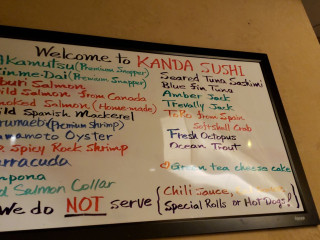 Welcome to KANDA SUSHI
kamutsu (Premium Snapper)
inme-Dai (Premium Snapper)
buri Salmon
ild Salmon from Canada
moked Salmon (Home-made)
ild Spanish Mackerel
urumaebi (Premium Shrimp)
amamoto Oyster
Spicy Rock Shrimp
arracuda
mpona
d Salmon Collar
Seared Tuna Sashimi
Blue fin Tuna
Amber Jack
Trevally Jack
Toro from Spain
Softshell Crab
Fresh Octopus
Ocean Trout
Green tea cheese cake
We do NOT serve
Chili Sauce,
Special Rolls or Hot Dogs!